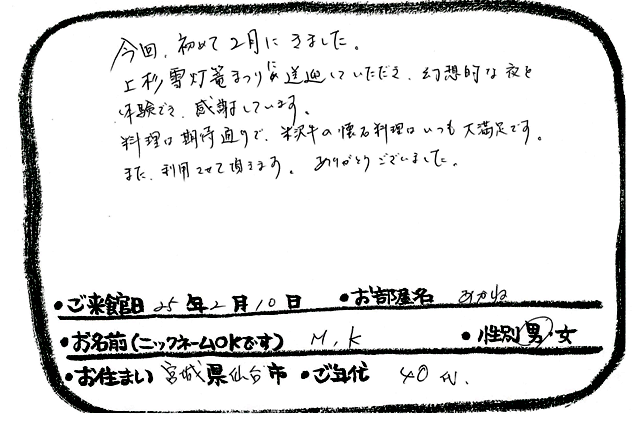 今回、初めて2月にきました。
上杉雪灯篭まつりにも送迎していただき、幻想的な夜を
体験でき、感謝しています。
料理は期待通りで、米沢牛の懐石料理はいつも大満足です。
また、利用させて頂きます。ありがとうございました。
•ご来館日 25年2月10日 •お部屋名 あかね
•お名前(ニックネームOKです) M.K •性別 男・女
•お住まい 宮城県仙台市 •ご年代 40代.